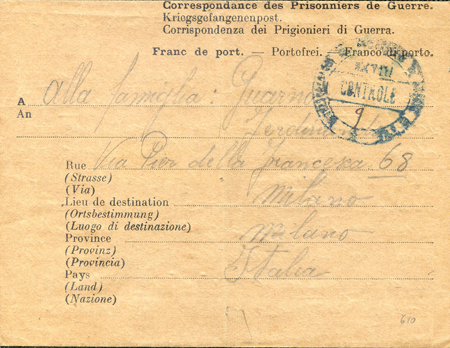 Correspondance des Prisonniers de Guerre.
Kriegsgefangenenpost.
Corrispondenza dei Prigionieri di Guerra.
Franc de port. — Portofrei. — Franco di porto.
CONTROLE
9
A alla famiglia:
An
Rue Via Pier della Francesca 68
(Strasse)
(Via)
Lieu de destination Milano
(Ortsbestimmung)
(Luogo di destinazione)
Province Milano
(Provinz)
(Provincia)
Pays Italia
(Land)
(Nazione)